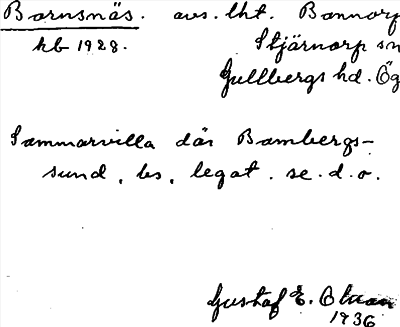 Barnsnäs. avs. lht. Bannorp
kb 1928. Stjärnorp sn
Gullbergs hd. Ög
Sammarvilla där Bambergs-
sund, bs, legat. se. d. o.
Gustaf E.
1936